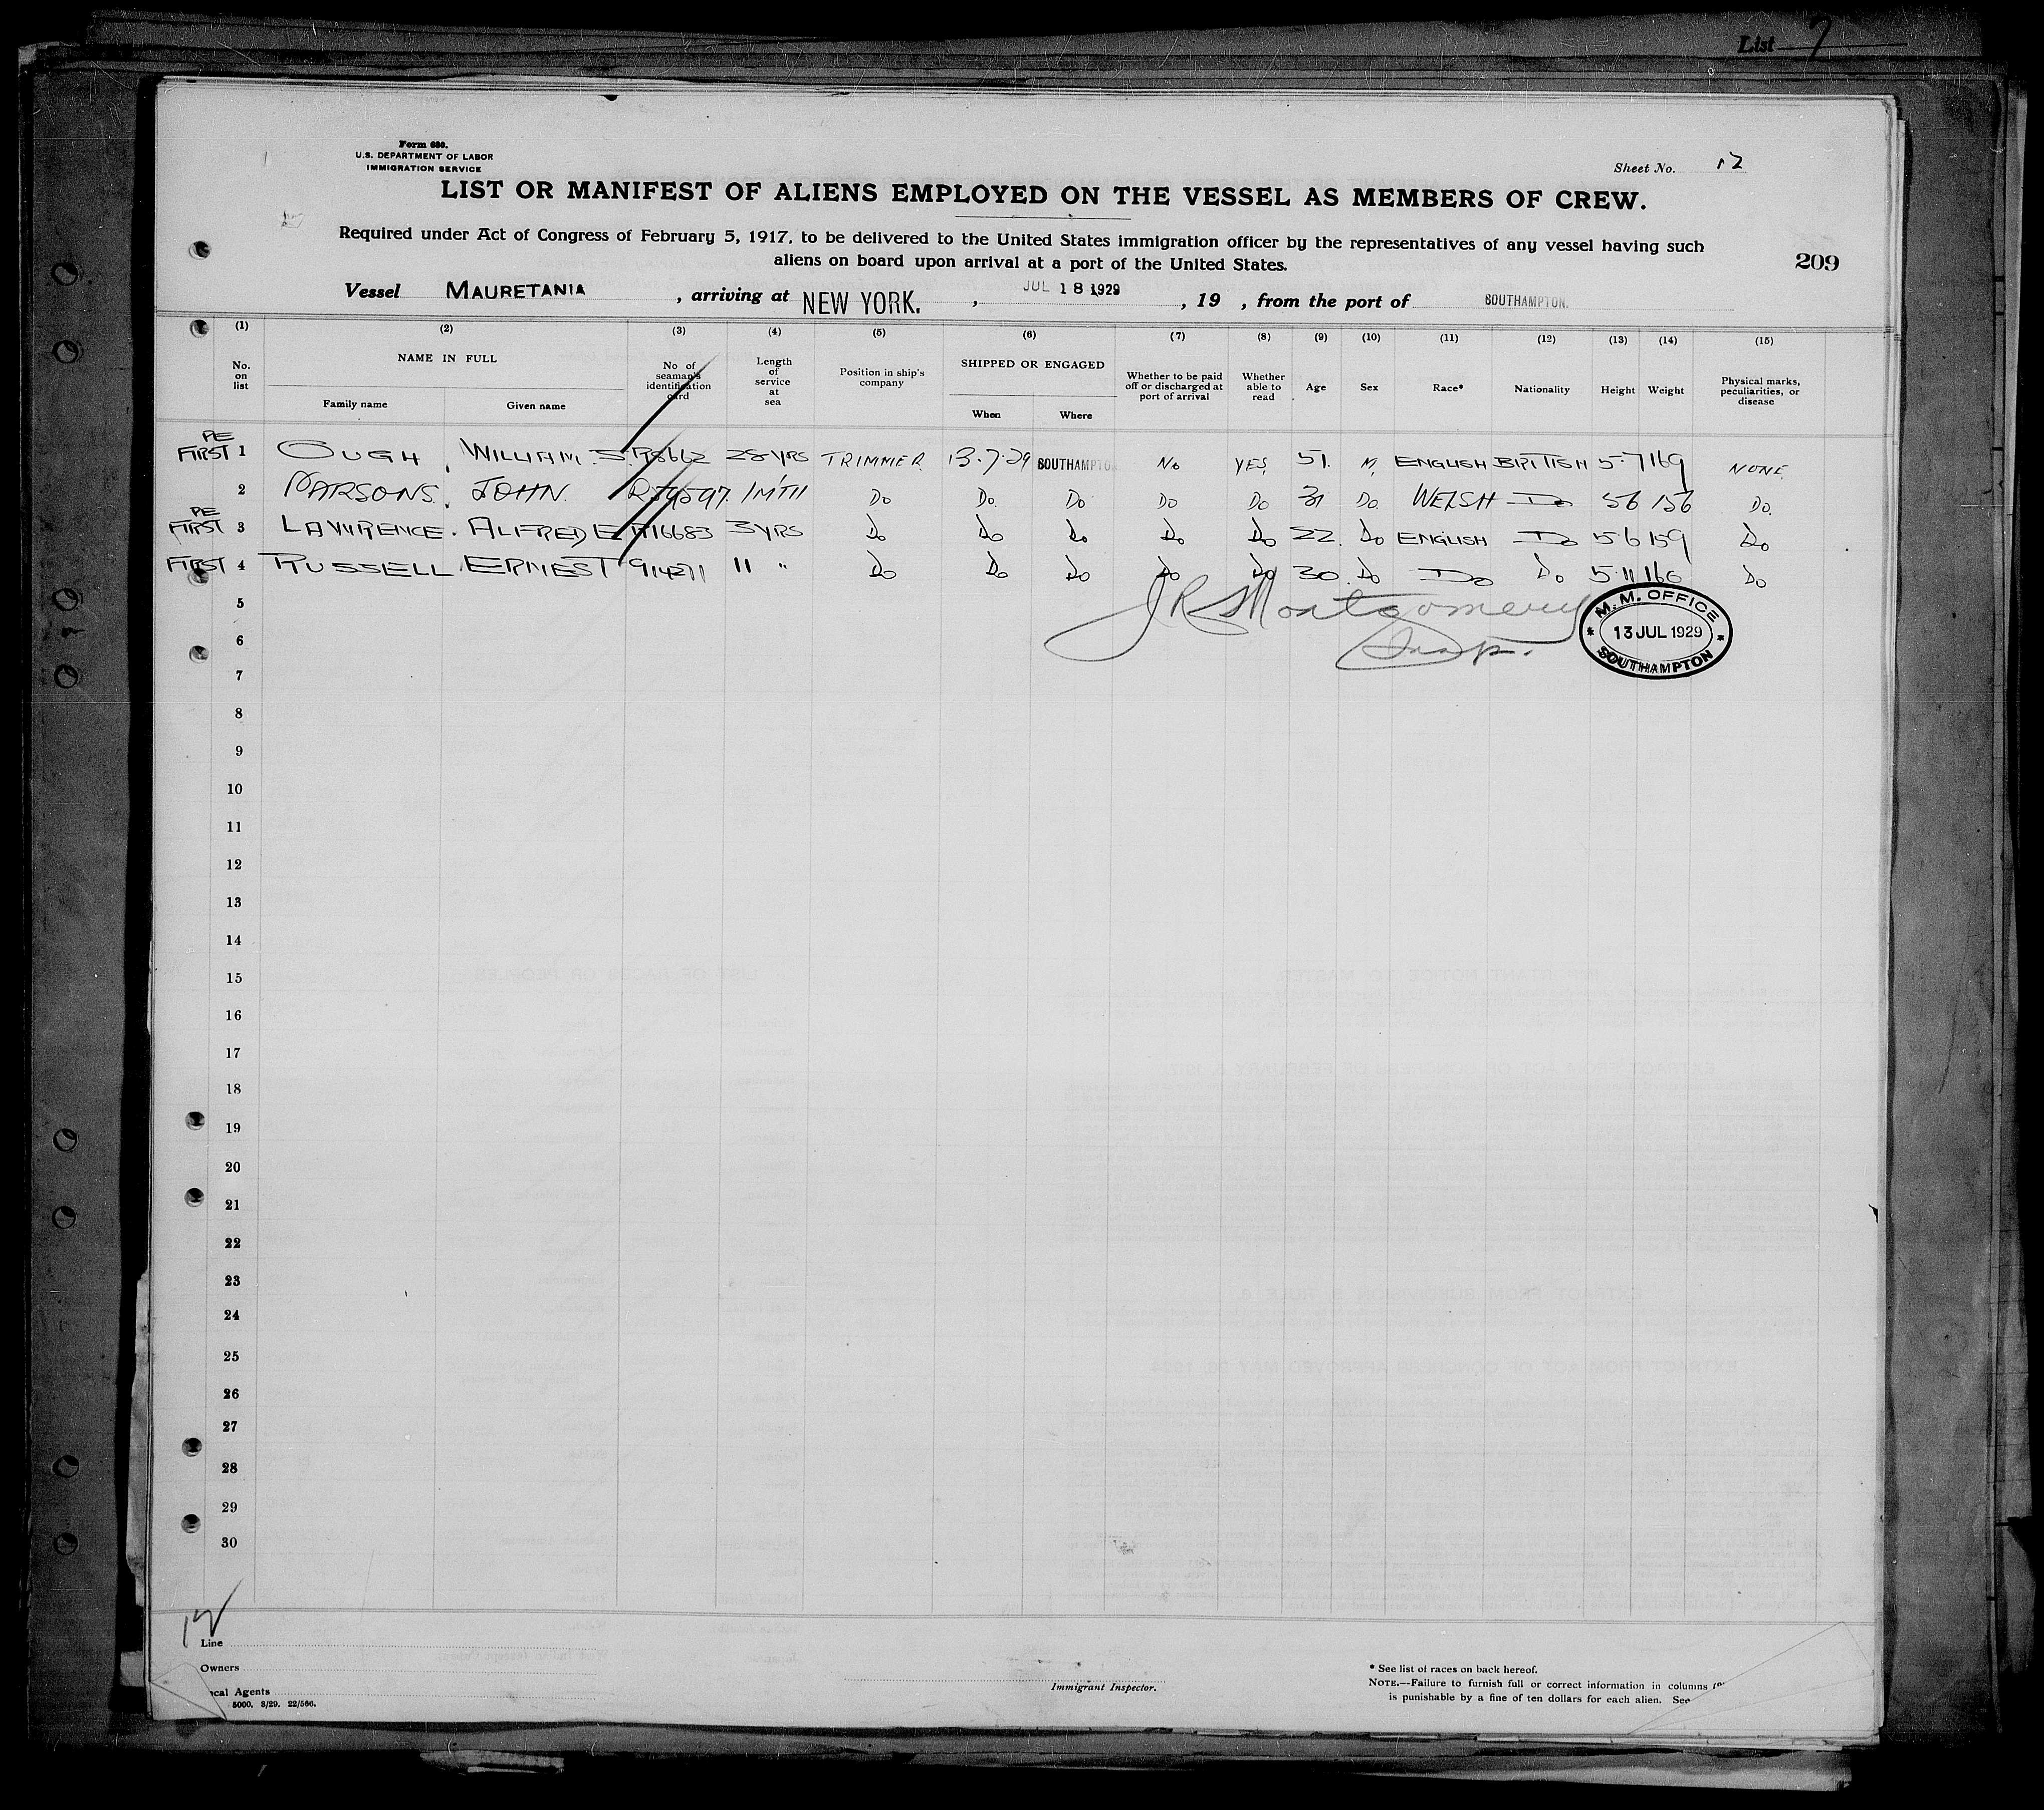 List 7
Form 680.
U.S. DEPARTMENT OF LABOR
IMMIGRATION SERVICE
Sheet No. 12
LIST OR MANIFEST OF ALIENS EMPLOYED ON THE VESSEL AS MEMBERS OF CREW.
Required under Act of Congress of February 5, 1917, to be delivered to the United States immigration officer by the representatives of any vessel having such
aliens on board upon arrival at a port of the United States.
209
Vessel MAURETANIA , arriving at NEW YORK. , JUL 18 1929 , 19 , from the port of SOUTHAMPTON.
(1) (2) (3) (4) (5) (6) (7) (8) (9) (10) (11) (12) (13) (14) (15)
No. on list
NAME IN FULL
Family name
Given name
No of seaman's identification card
Length of service at sea
Position in ship's company
SHIPPED OR ENGAGED
When
Where
Whether to be paid off or discharged at port of arrival
Whether able to read
Age
Sex
Race*
Nationality
Height
Weight
Physical marks, peculiarities, or disease
PE
FIRST 1 OUGH, WILLIAM. S. 28 YRS TRIMMER 13.7.29 SOUTHAMPTON No YES 51. M, ENGLISH BRITISH 5.7 169 NONE
2 PARSONS, JOHN. 1 MTH Do Do. Do Do Do 31 Do. WELSH Do 56 156 Do.
PE
FIRST 3 LAWRENCE. ALFRED E R16683 3 YRS Do Do Do Do Do 22. Do ENGLISH Do 5.6 159 Do
FIRST 4 RUSSELL ERNEST 914271 11 " Do Do Do Do Do 30. Do Do Do 5.11 160 Do
5
J R Montgomery
6
Insp.
M. M. OFFICE
* 13 JUL 1929 *
SOUTHAMPTON
7
8
9
10
11
12
13
14
15
16
17
18
19
20
21
22
23
24
25
26
27
28
29
30
Line
Owners
cal Agents
5000. 3/29. 22/566.
Immigrant Inspector.
* See list of races on back hereof.
NOTE.—Failure to furnish full or correct information in columns
is punishable by a fine of ten dollars for each alien. See